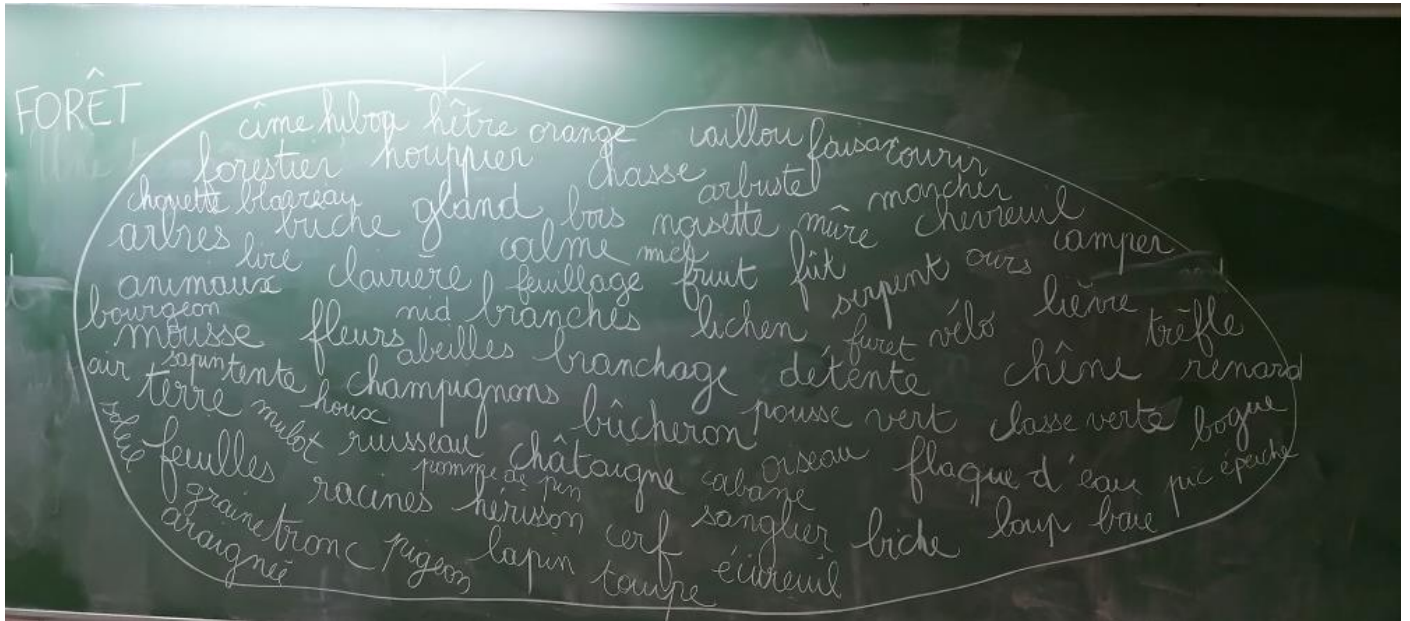 FORÊT
cîme hibou hêtre orange caillou faisan courir
forestier houppier chasse arbuste marcher
chouette blaireau buche gland bois noisette mûre chevreuil
arbres lire clairière calme miel fruit fût serpent ours camper
animaux feuillage
bourgeon nid branches lichen furet vélo lièvre trèfle
mousse fleurs abeilles branchage détente chêne renard
air sapin tente champignons bûcheron pousse vert classe verte bogue
terre mulot houx ruisseau châtaigne cabane oiseau flaque d'eau pic épeiche
soleil feuilles racines pomme de pin hérisson cerf sanglier biche loup baie
graine tronc pigeon lapin taupe écureuil
araignée